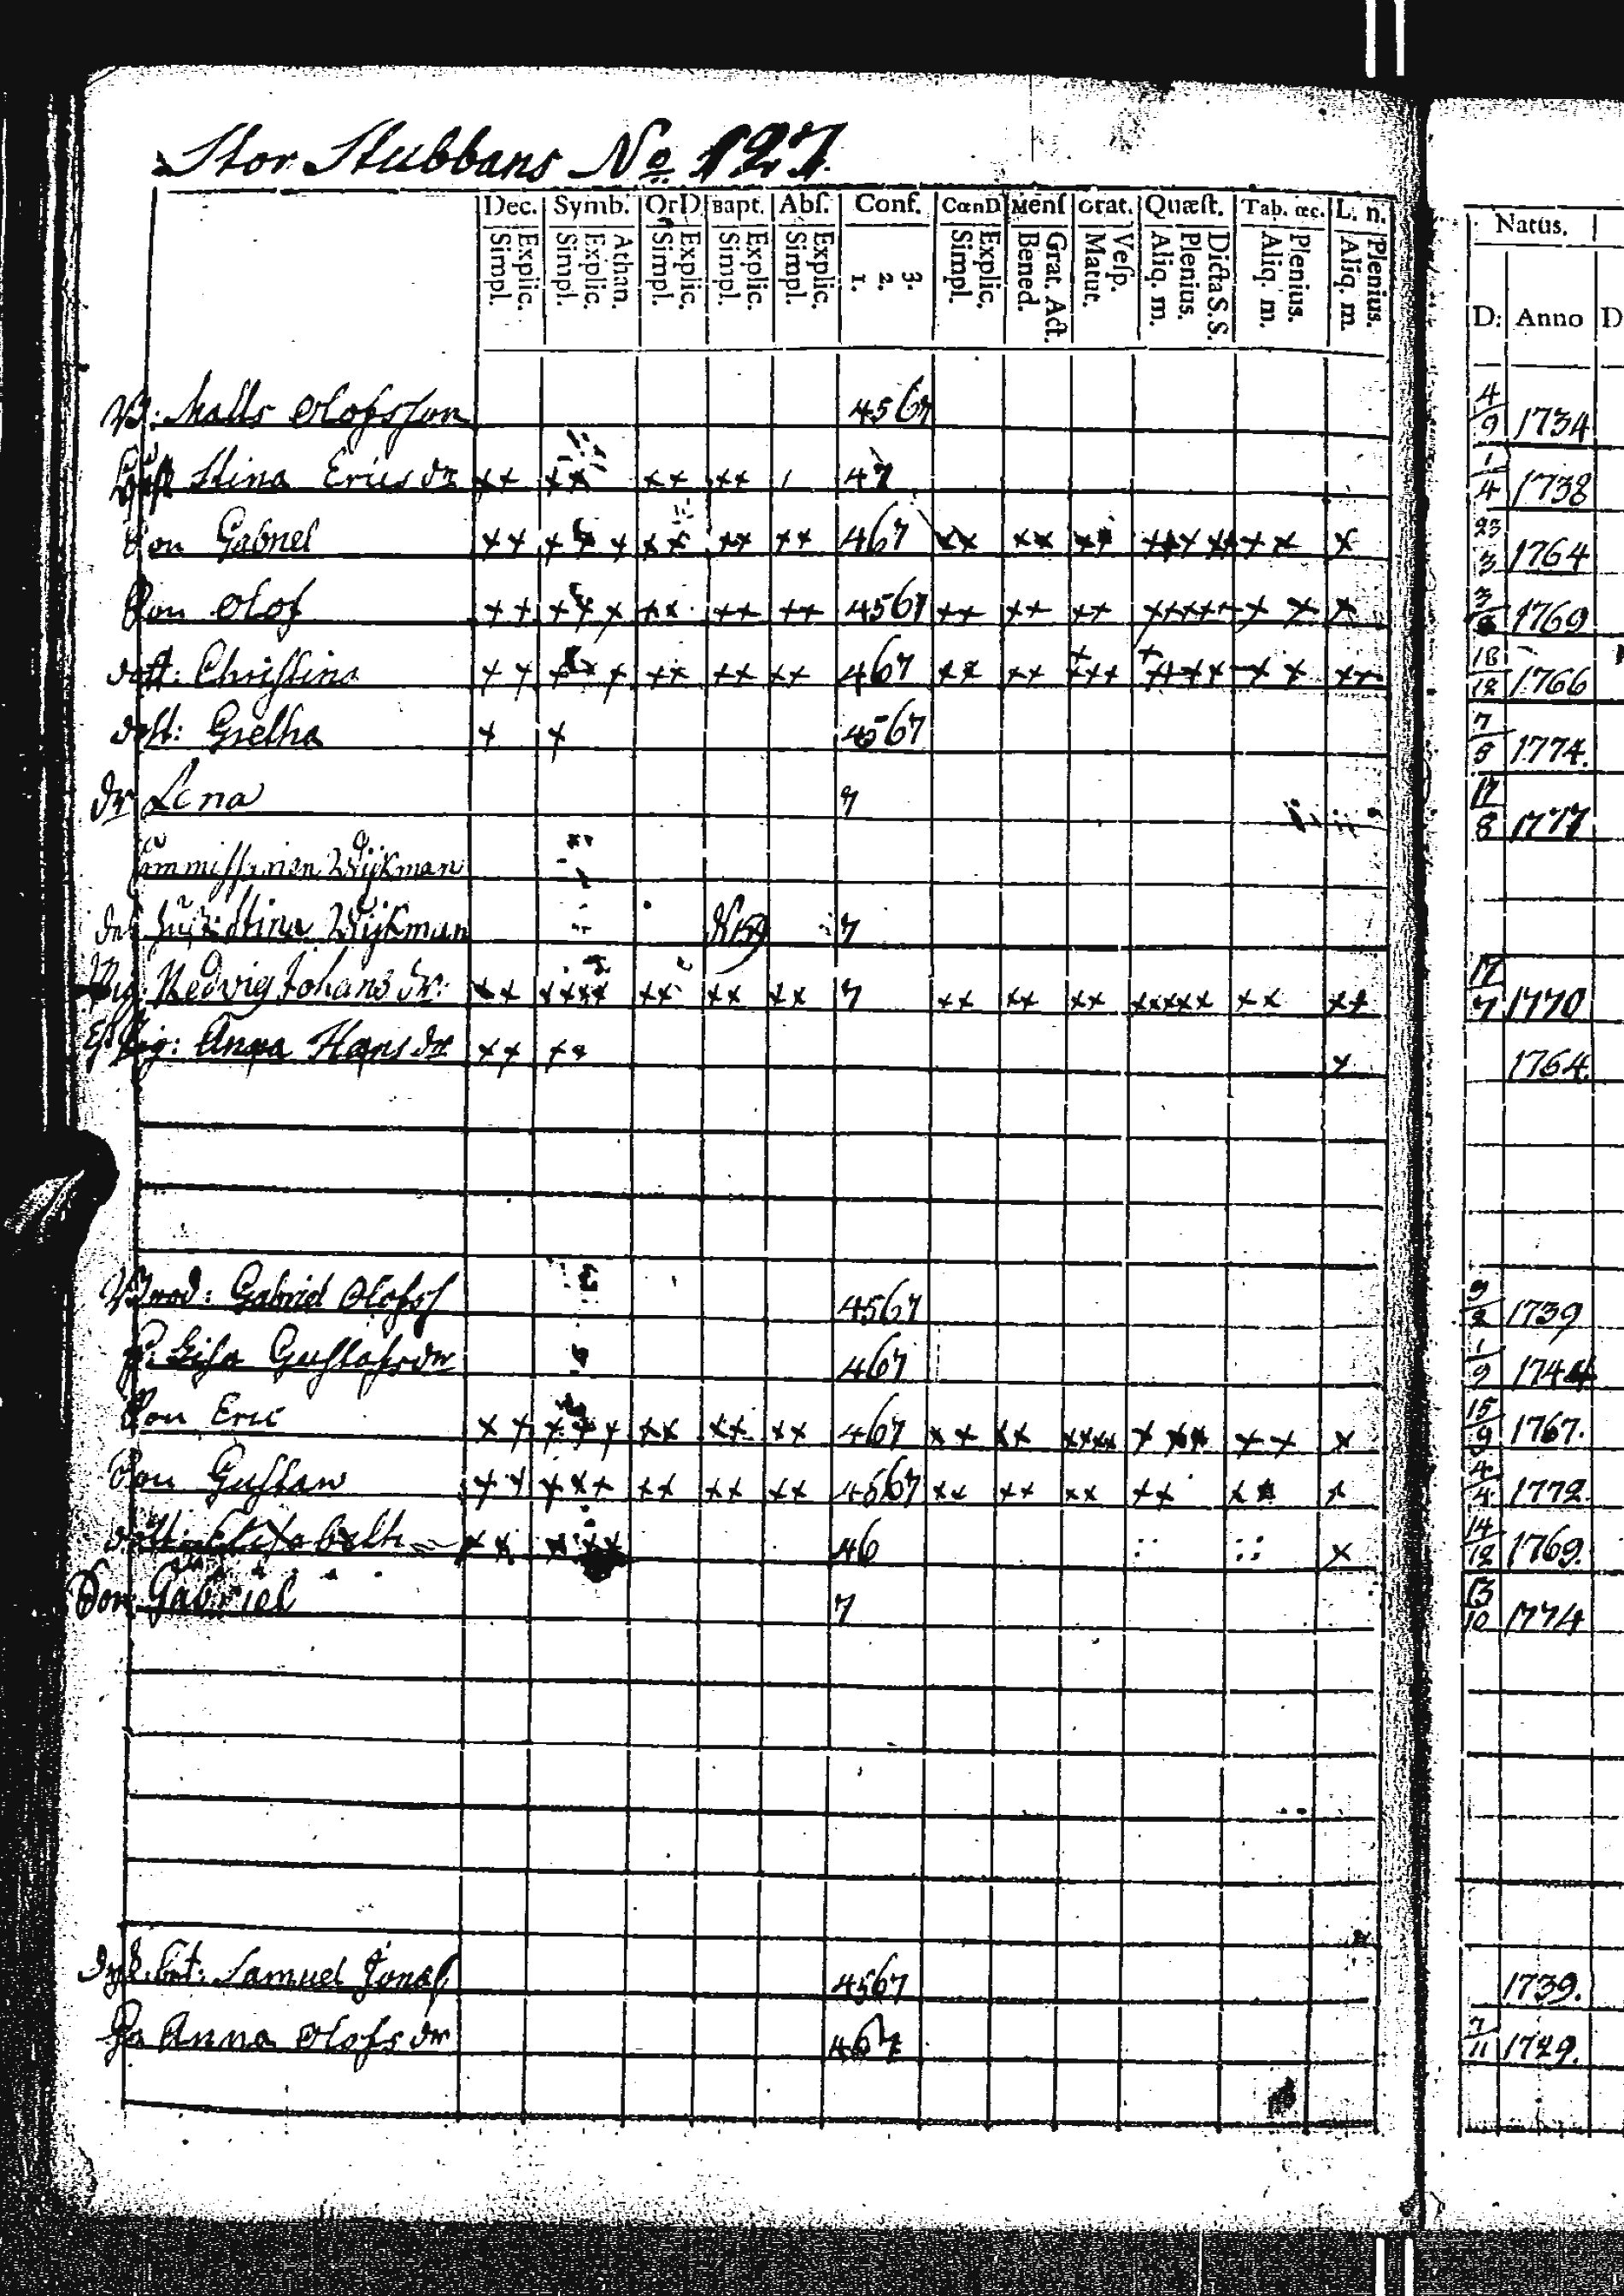 Stor Stubbans No 127.
Dec. Symb. OrD. Bapt. Abſ. Conf. CœnD. Menſ Grat. Quæſt. Tab. œc. L. n. Natus.
Simpl. Explic. Simpl. Explic. Athan. Simpl. Explic. Simpl. Explic. Simpl. Explic. 1. 2. 3. Simpl. Explic. Bened. Grat. Act. Matut. Veſp. Aliq. m. Plenius. Dicta S. S. Aliq. m. Plenius. Aliq. m Plenius. D: Anno D
B: Matts Olofsson 4567 4/9 1734
Stina Erics dr ++ ++ ++ ++ 47 1/4 1738
Son Gabriel ++ +++ ++ ++ ++ 467 ++ ++ ++ +++++ ++ + 23/3 1764
Son Olof ++ +++ ++ ++ ++ 4567 ++ ++ ++ +++++ ++ + 1769
dott: Christina ++ +++ ++ ++ ++ 467 ++ ++ ++++ ++++++ ++ ++ 18/12 1766
dott: Gretha + + 4567 7/8 1774.
dr Lena 7 17/8 1777
Commissarien Wijkman
Stina Wijkman 7
Pig: Hedvig Johans dr: ++ ++++ ++ ++ ++ 7 ++ ++ ++ +++++ ++ ++ 17/7 1770
Pig: Anna Hans dr ++ ++ + 1764.
Brod: Gabriel Olofss 4567 1739
H. Lisa Gustafs dr 467 1/9 1744
Son Eric ++ +++ ++ ++ ++ 467 ++ ++ ++++ +++ ++ + 15/9 1767.
Son Gustav ++ +++ ++ ++ ++ 4567 ++ ++ ++ ++ ++ + 4/4 1772.
dott: Elisabeth ++ +++ 46 + 14/12 1769.
Son Gabriel 7 13/10 1774
Samuel Jonas 4567 1739.
Anna Olofs dr 467 7/11 1729.